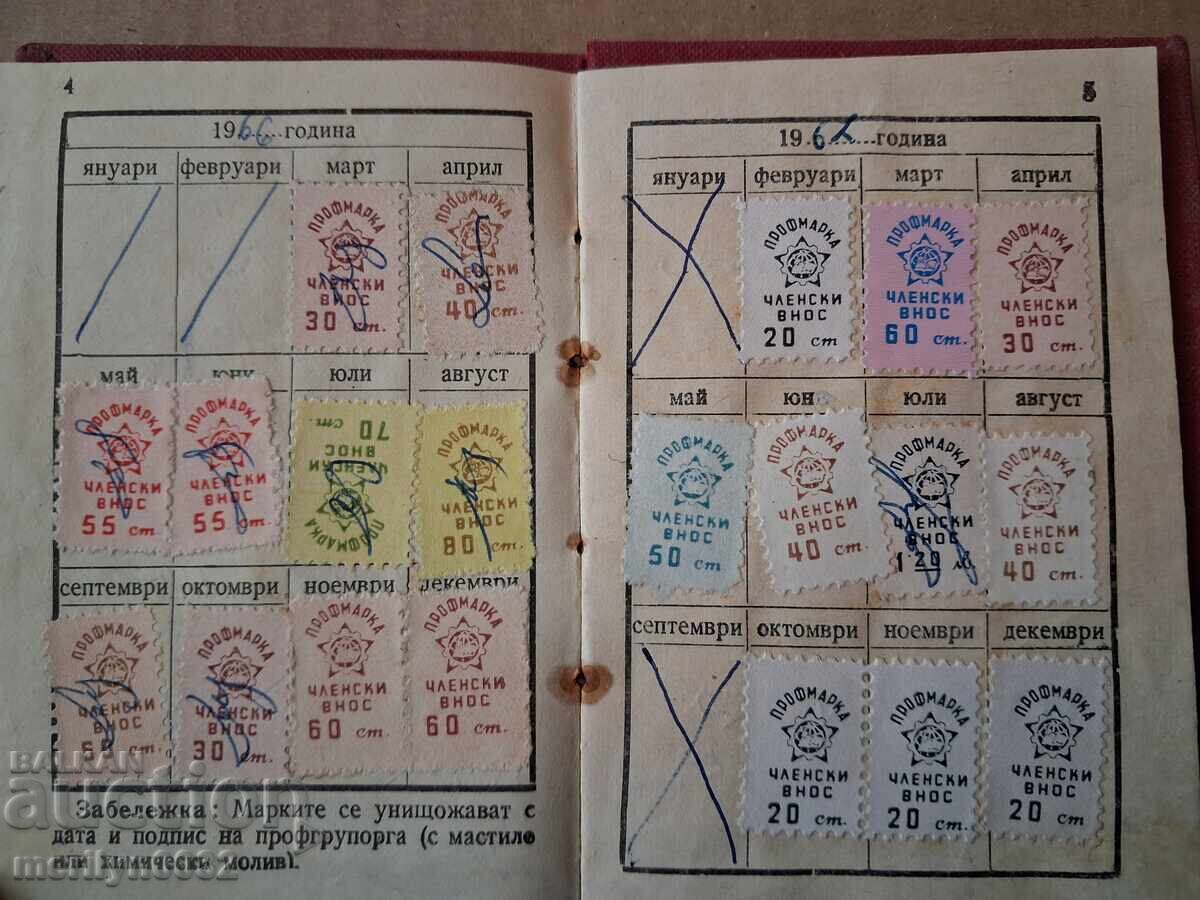 4
1966 година
януари февруари март април
ПРОФМАРКА
ЧЛЕНСКИ
ВНОС
30 ст.
ПРОФМАРКА
ЧЛЕНСКИ
ВНОС
40 ст.
май юну юли август
ПРОФМАРКА
ЧЛЕНСКИ
ВНОС
55 ст.
ПРОФМАРКА
ЧЛЕНСКИ
ВНОС
55 ст.
ПРОФМАРКА
ЧЛЕНСКИ
ВНОС
70 ст.
ПРОФМАРКА
ЧЛЕНСКИ
ВНОС
80 ст.
септември октомври ноември декември
ПРОФМАРКА
ЧЛЕНСКИ
ВНОС
ст.
ПРОФМАРКА
ЧЛЕНСКИ
ВНОС
30 ст.
ПРОФМАРКА
ЧЛЕНСКИ
ВНОС
60 ст.
ПРОФМАРКА
ЧЛЕНСКИ
ВНОС
60 ст.
Забележка: Марките се унищожават с
дата и подпис на профгрупорга (с мастило
или химически молив).
5
196 година
януари февруари март април
ПРОФМАРКА
ЧЛЕНСКИ
ВНОС
20 ст
ПРОФМАРКА
ЧЛЕНСКИ
ВНОС
60 ст.
ПРОФМАРКА
ЧЛЕНСКИ
ВНОС
30 ст.
май юн юли август
ПРОФМАРКА
ЧЛЕНСКИ
ВНОС
50 ст
ПРОФМАРКА
ЧЛЕНСКИ
ВНОС
40 ст.
ПРОФМАРКА
ЧЛЕНСКИ
ВНОС
1 20 лв
ПРОФМАРКА
ЧЛЕНСКИ
ВНОС
40 ст.
септември октомври ноември декември
ПРОФМАРКА
ЧЛЕНСКИ
ВНОС
20 ст
ПРОФМАРКА
ЧЛЕНСКИ
ВНОС
20 ст
ПРОФМАРКА
ЧЛЕНСКИ
ВНОС
20 ст
BALKAN
auction
merilyn0002